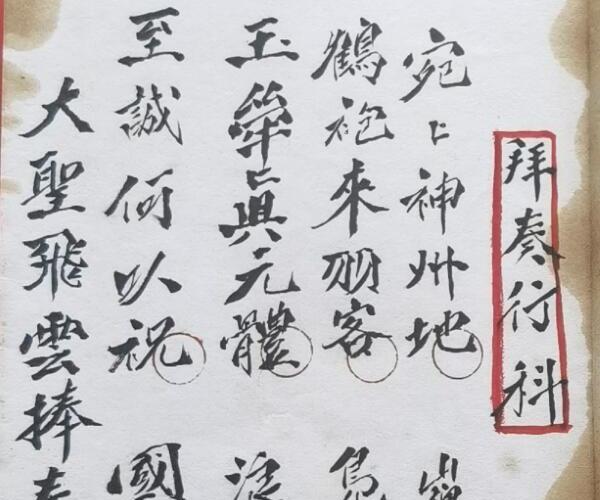 拜奏行科
宛〻神州地
鶴袍來羽客
玉元體
至誠何以祝 國
大聖飛雲捧